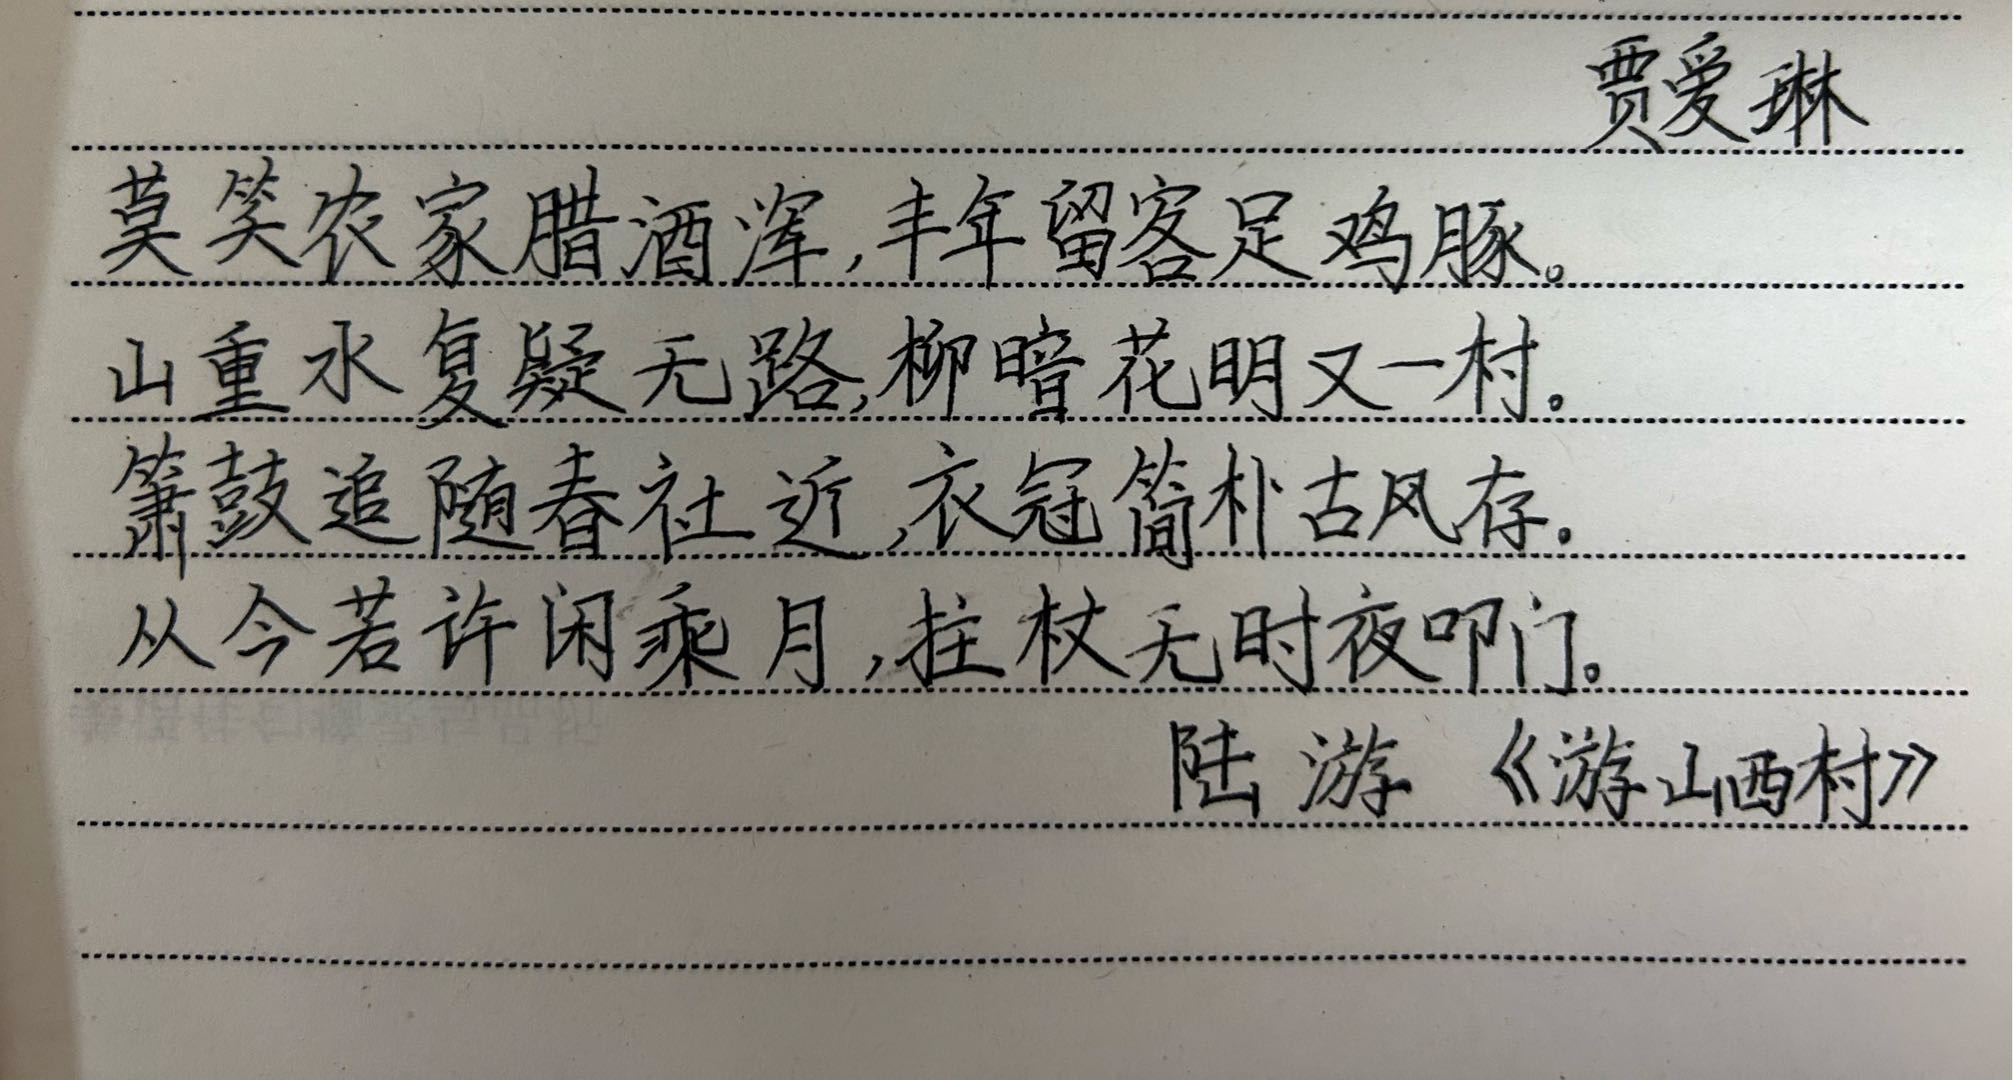 贾爱琳
莫笑农家腊酒浑,丰年留客足鸡豚。
山重水复疑无路,柳暗花明又一村。
箫鼓追随春社近,衣冠简朴古风存。
从今若许闲乘月,拄杖无时夜叩门。
陆游 《游山西村》